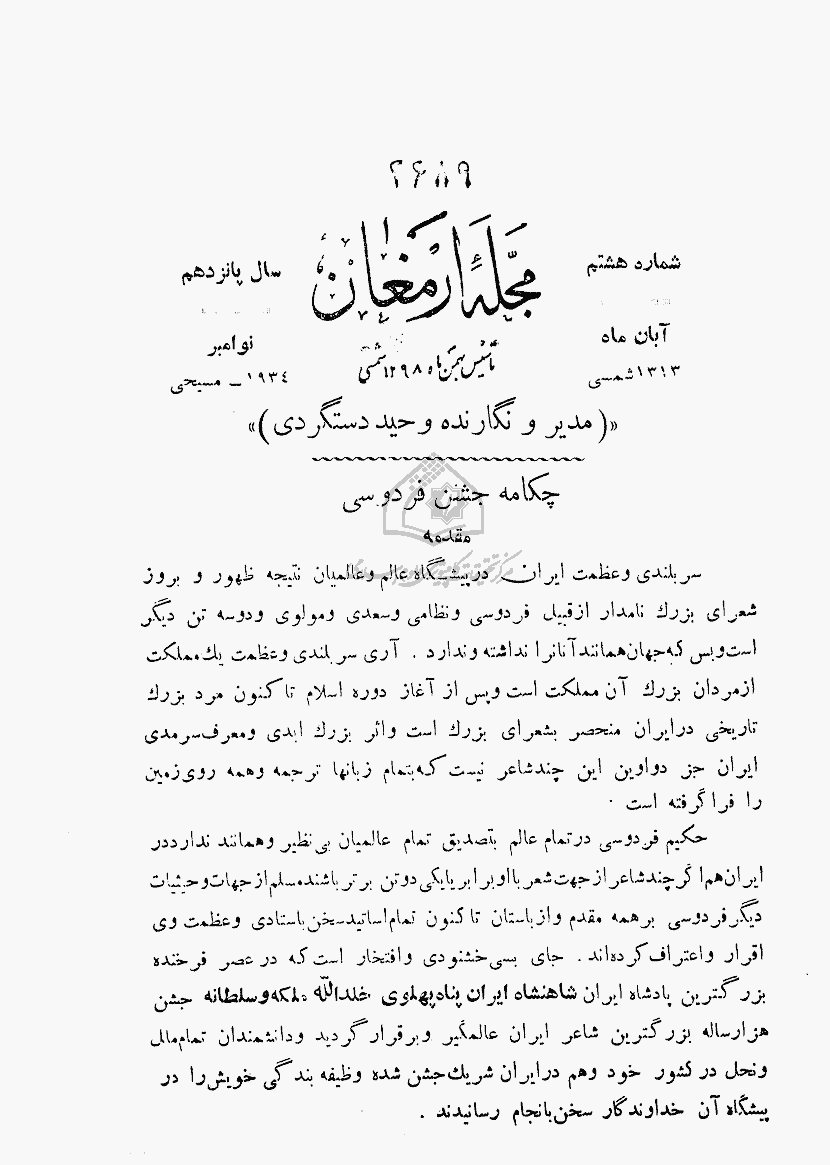 ۲۶۸۹
شماره هشتم
مجلهٔ ارمغان
سال پانزدهم
آبان ماه
۱۳۱۳ شمسی
تأسیس بهمن ماه ۱۲۹۸ شمسی
نوامبر
۱۹۳٤ ــ مسیحی
«(مدیر و نگارنده وحید دستگردی)»
چکامه جشن فردوسی
مقدمه
سربلندی وعظمت ایران درپیشگاه عالم وعالمیان نتیجه ظهور و بروز
شعرای بزرك نامدار ازقبیل فردوسی ونظامی وسعدی ومولوی ودوسه تن دیگر
است وبس که جهان همانند آنانرا نداشته وندارد . آری سربلندی وعظمت یك مملکت
ازمردان بزرك آن مملکت است وپس از آغاز دوره اسلام تاکنون مرد بزرك
تاریخی درایران منحصر بشعرای بزرك است واثر بزرك ابدی ومعرف سرمدی
ایران جز دواوین این چندشاعر نیست که بتمام زبانها ترجمه وهمه روی زمین
را فراگرفته است .
حکیم فردوسی درتمام عالم بتصدیق تمام عالمیان بی نظیر وهمانند ندارددر
ایران هم اگرچندشاعر ازجهت شعر بااو برابر یایکی دوتن برتر باشندمسلم ازجهات وحیثیات
دیگرفردوسی برهمه مقدم وازباستان تاکنون تمام اساتیدسخن باستادی وعظمت وی
اقرار واعتراف کرده‌اند . جای بسی خشنودی وافتخار است که در عصر فرخنده
بزرگترین پادشاه ایران شاهنشاه ایران پناه پهلوی خلدالله ملکه وسلطانه جشن
هزارساله بزرگترین شاعر ایران عالمگیر وبرقرارگردید ودانشمندان تمام ملل
ونحل در کشور خود وهم درایران شریك جشن شده وظیفه بندگی خویش را در
پیشگاه آن خداوندگار سخن بانجام رسانیدند .